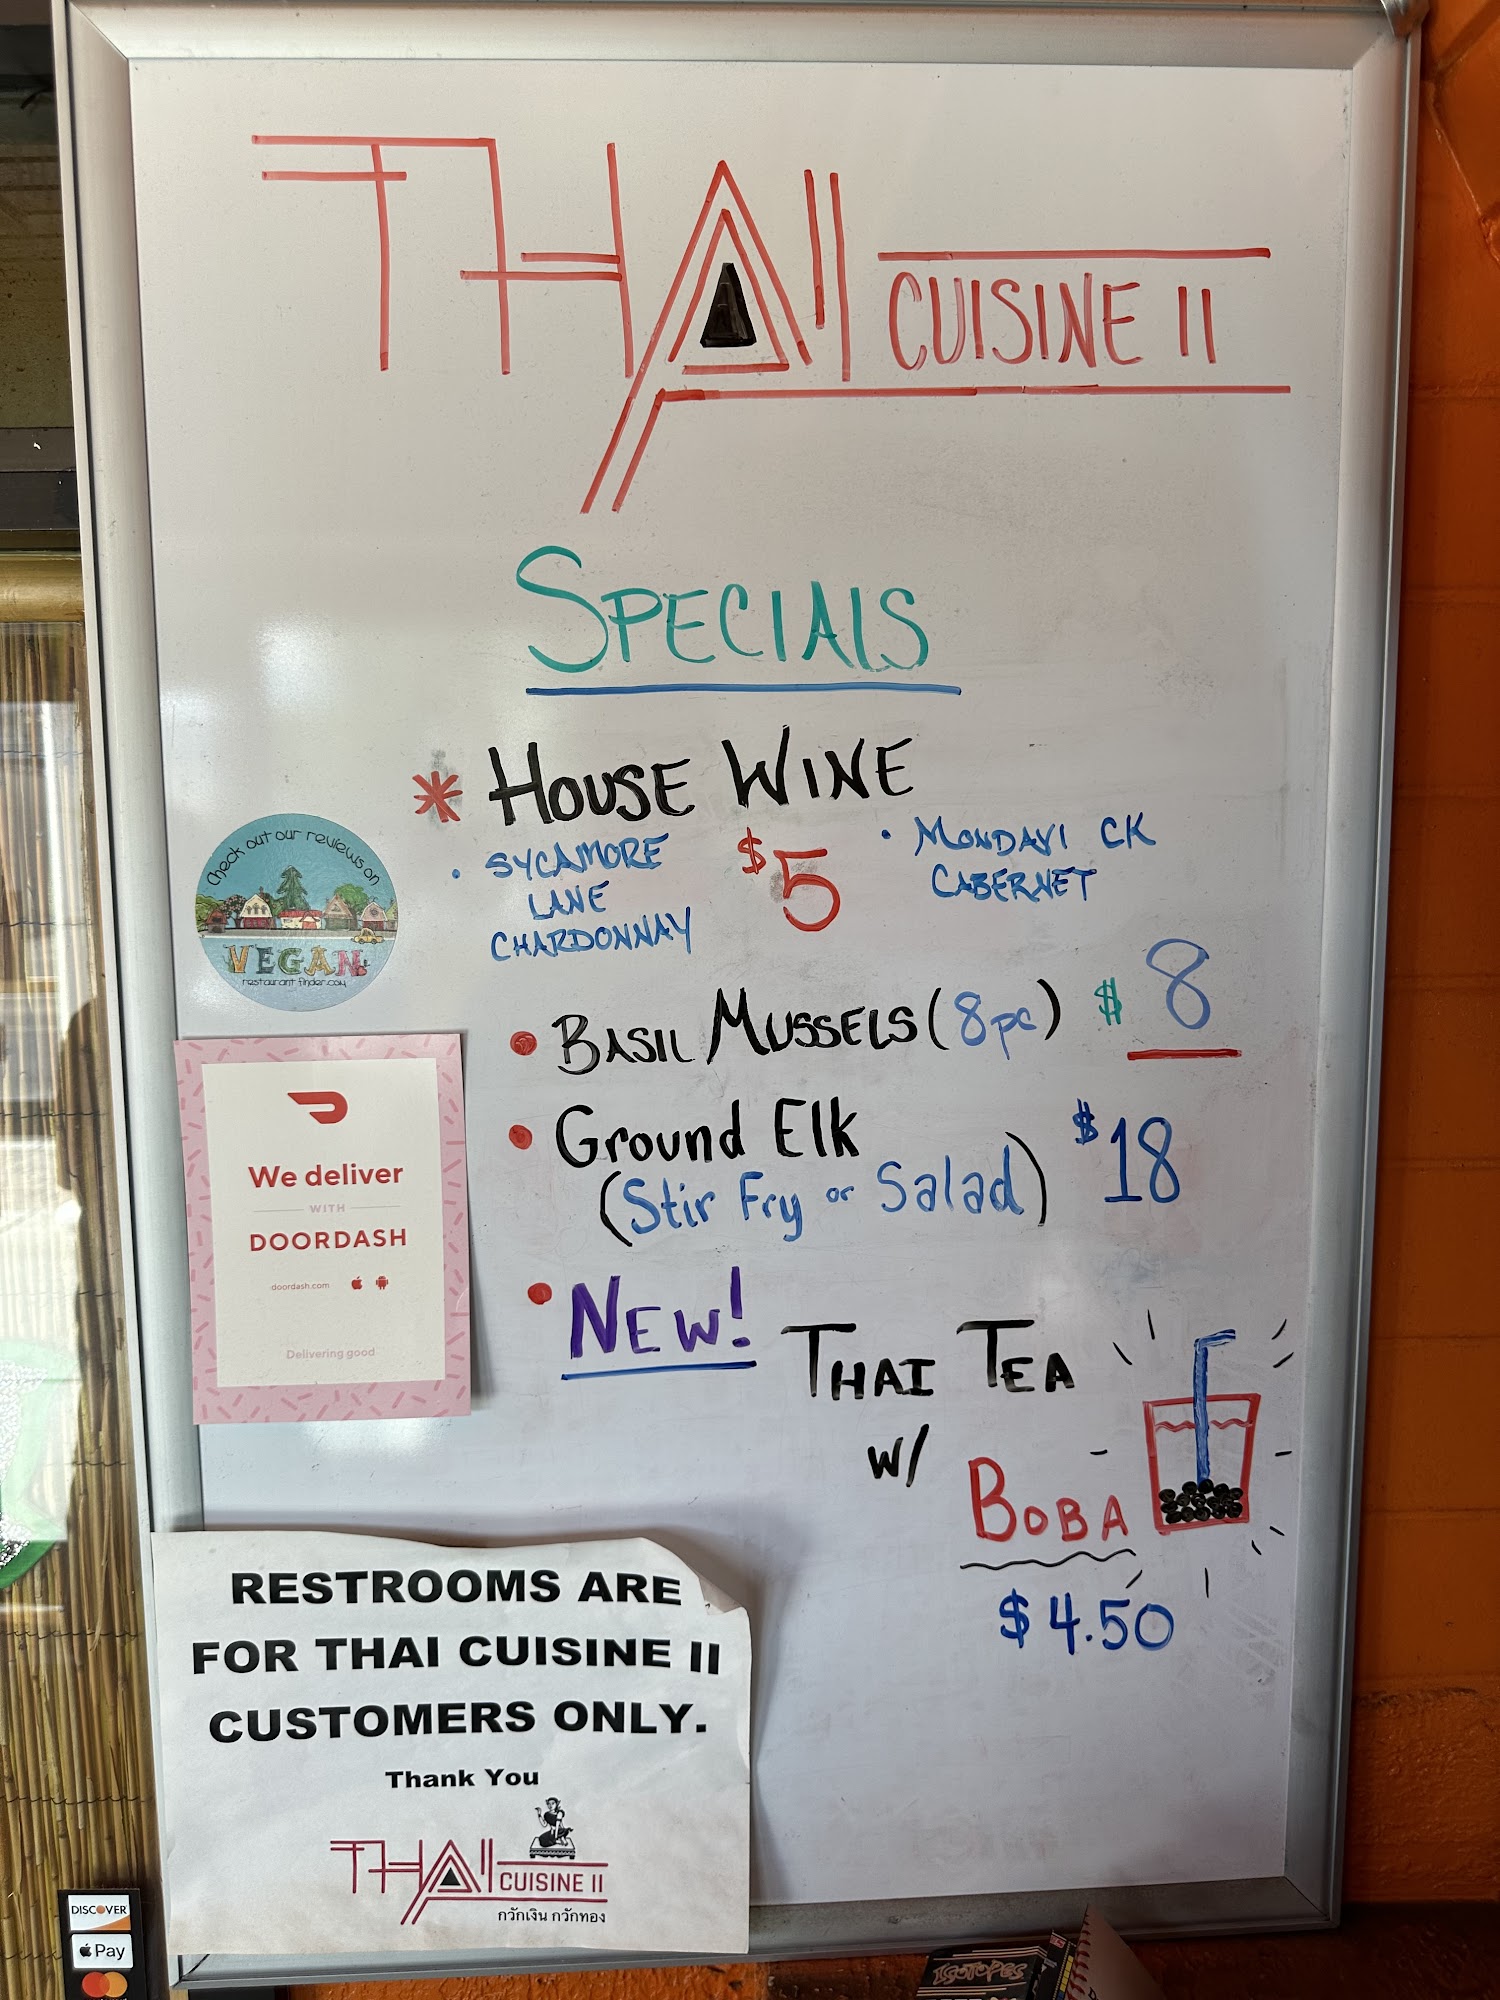 THAI CUISINE II
SPECIALS
* HOUSE WINE
• SYCAMORE
LANE
CHARDONNAY
$5
• MONDAVI CK
CABERNET
• BASIL MUSSELS (8pc) $8
• Ground Elk
(Stir Fry or Salad) $18
• NEW! THAI TEA
w/
BOBA
$4.50
Check out our reviews on
VEGAN
restaurant finder.com
We deliver
WITH
DOORDASH
doordash.com
Delivering good
RESTROOMS ARE
FOR THAI CUISINE II
CUSTOMERS ONLY.
Thank You
THAI CUISINE II
กวักเงิน กวักทอง
DISCOVER
Pay
ISOTOPES